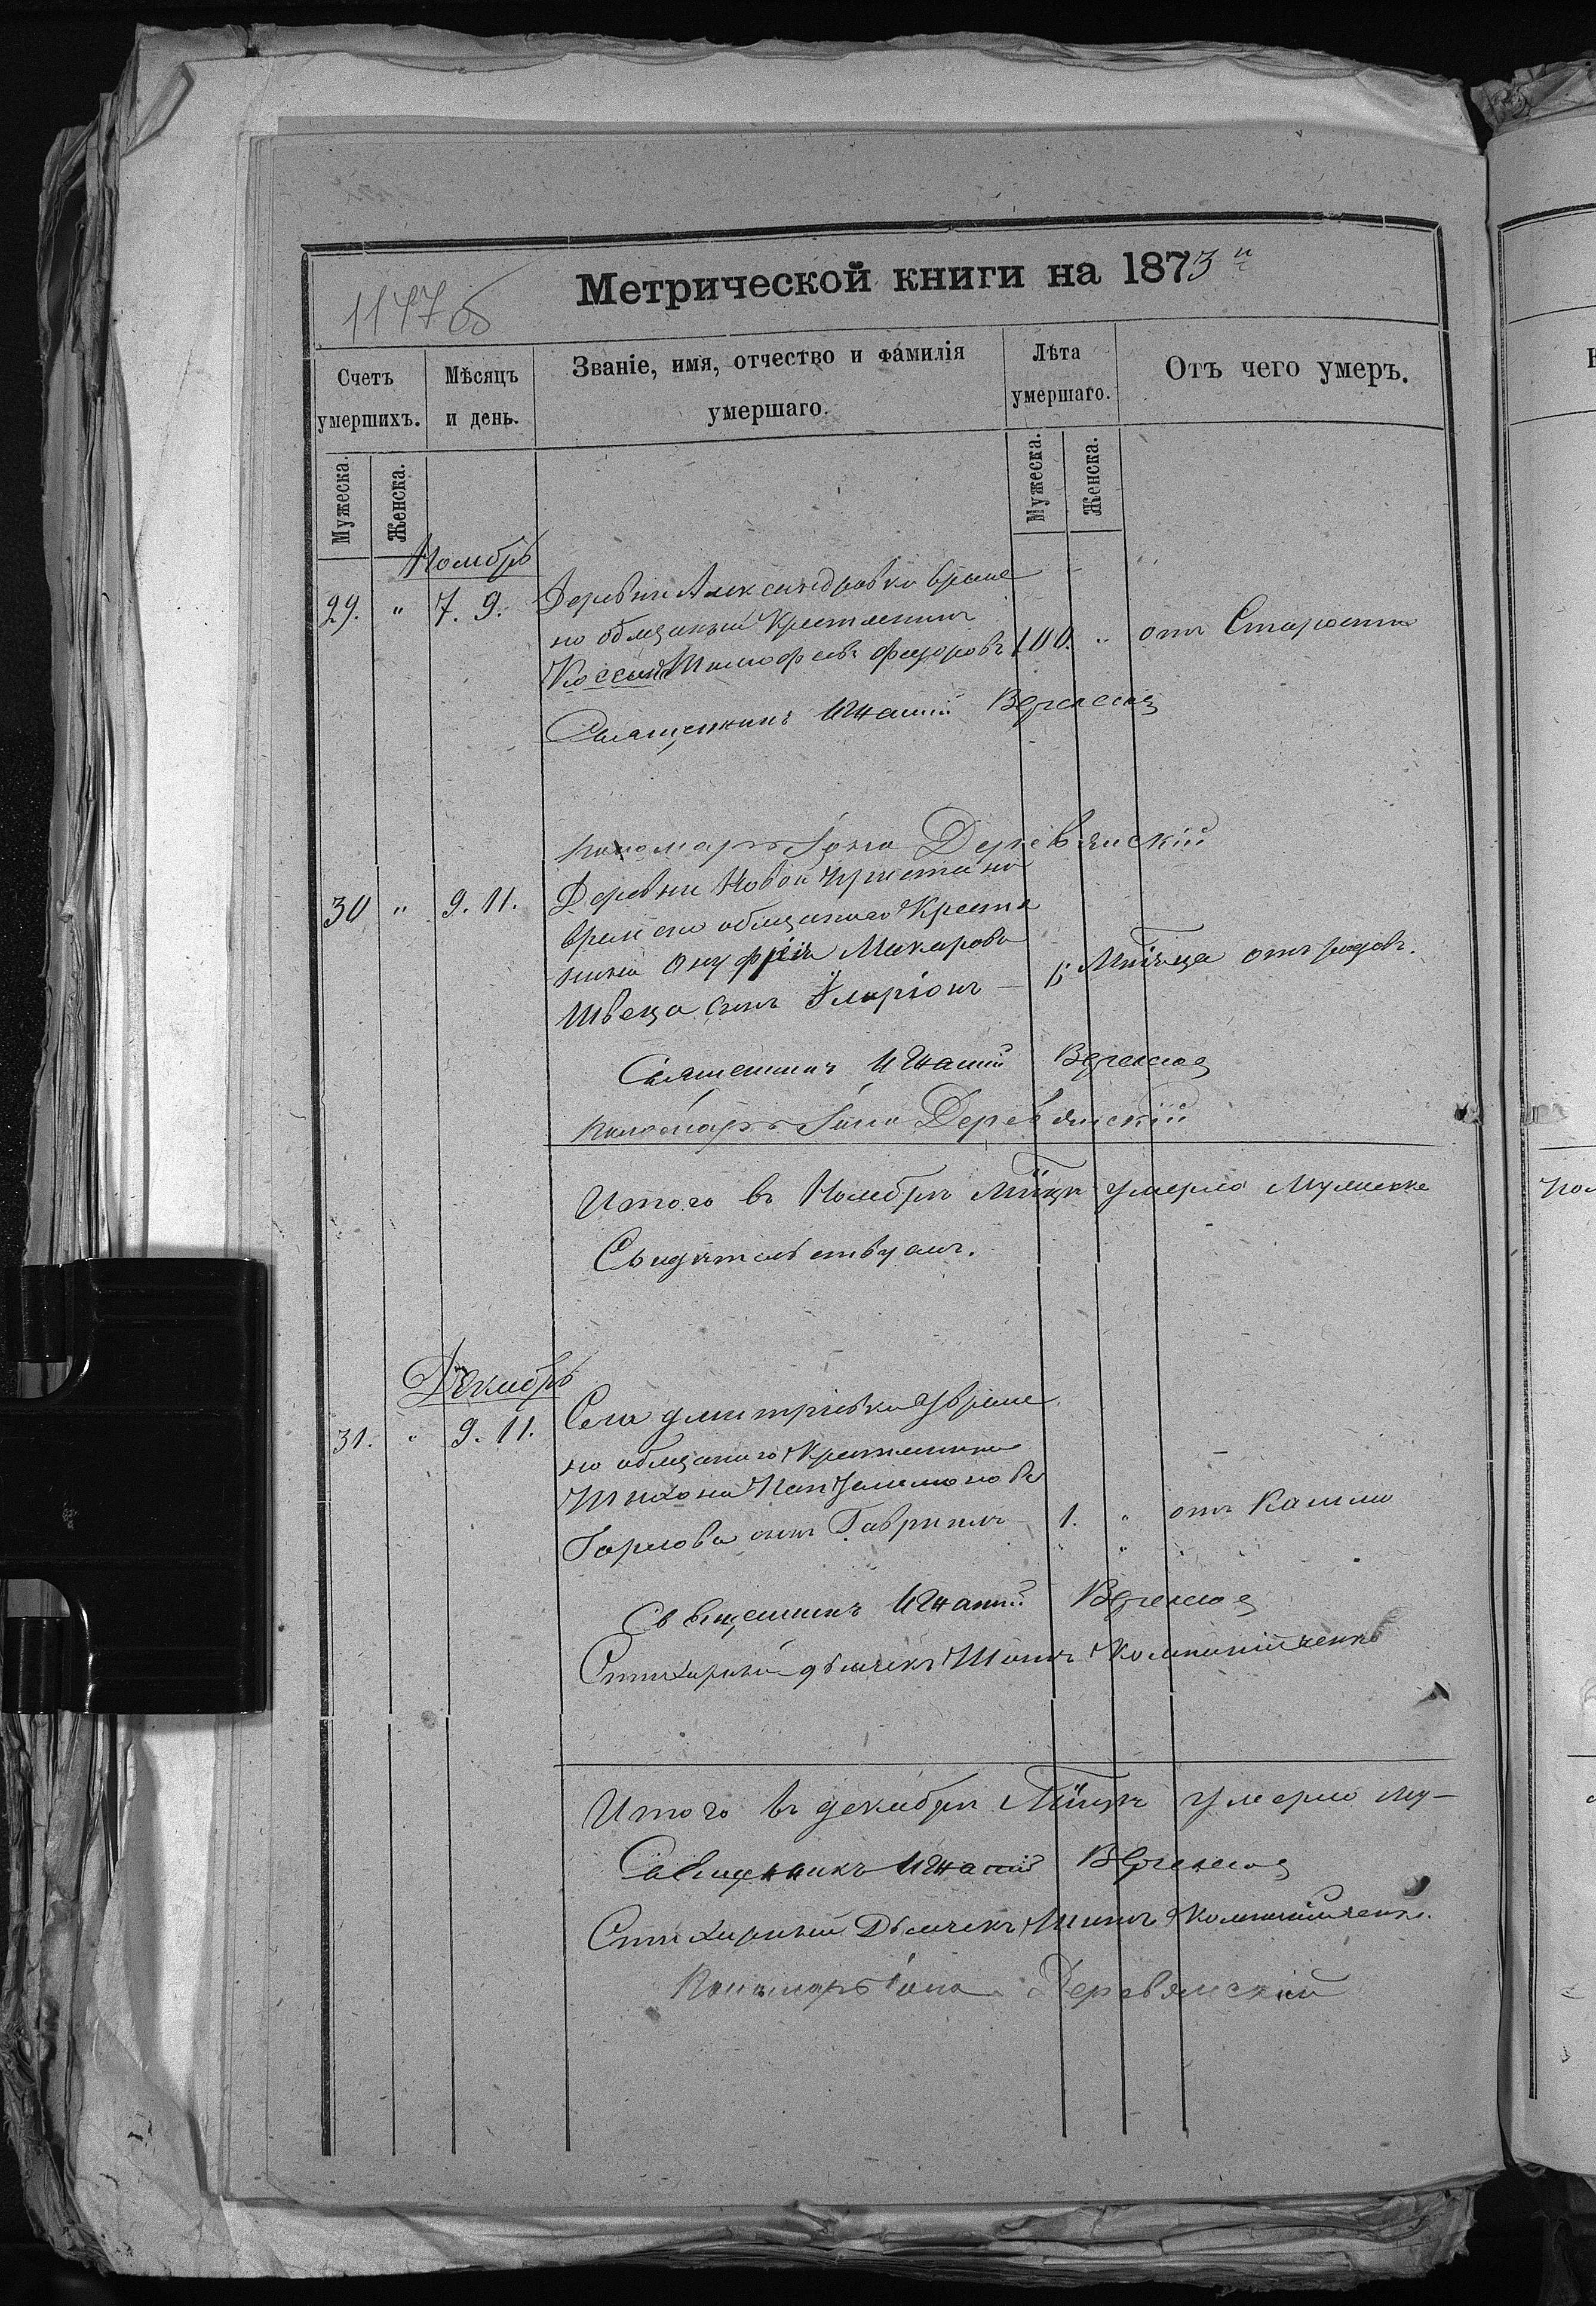 1147 об
Метрической книги на 1873 г
Счетъ умершихъ.
Мѣсяцъ и день.
Званіе, имя, отчество и фамилія умершаго.
Лѣта умершаго.
Отъ чего умеръ.
Мужеска.
Женска.
Мужеска.
Женска.
Ноябрь
29. " 7. 9. Деревни Александровки време
но обязанный Крестьянинъ
Тимофеевъ Федоровъ 100. " отъ Старости
Священникъ Игнатій
пономарь Іона Деревянскій
30 " 9. 11. Деревни Новой
времено обязанаго Крестья
нина Онуфрія Макарова
Швеца сынъ Иларіонъ – 6 Мѣсяца отъ родов.
Священникъ Игнатій
пономарь Іона Деревянскій
Итого въ Ноябрѣ Мѣсяцѣ умерло Мужеске
Свидѣтельствуемъ.
Декабрь
31. " 9. 11. Села Дмитріевки време
но обязанаго Крестьянина
Тихона Пантелемонова
Горлова сынъ Гавріилъ – 1. " отъ Кашлю
Священникъ Игнатій
Стихарный дьячекъ
Итого въ декабрѣ Мѣсяцѣ умерло му–
Священникъ Игнатій
Стихарный Дьячекъ
Пономарь Іона Деревянскій